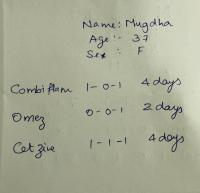 Name: Mugdha
Age :- 37
Sex : F
Combiflam 1-0-1 4 days
Omez 0-0-1 2 days
Cetzine 1-1-1 4 days